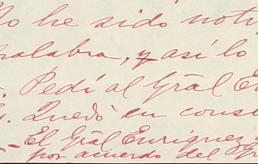 No he sido noti
palabra, y así lo
. Pedí al Gral E
. Quedó en cons
- El Gral Enriquez
por acuerdo del